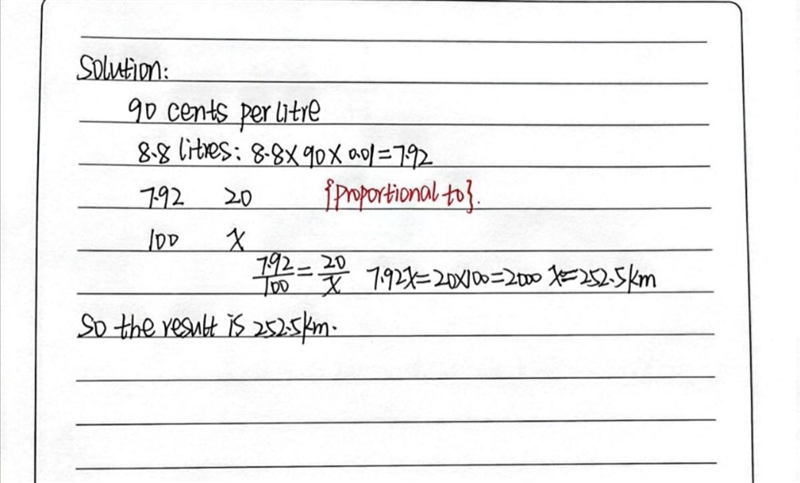 Solution:
90 cents per litre
8.8 litres: 8.8×90×0.01=7.92
7.92 20 {proportional to}.
100 x
7.92/100=20/x 7.92x=20×100=2000 x=252.5km
So the result is 252.5km.